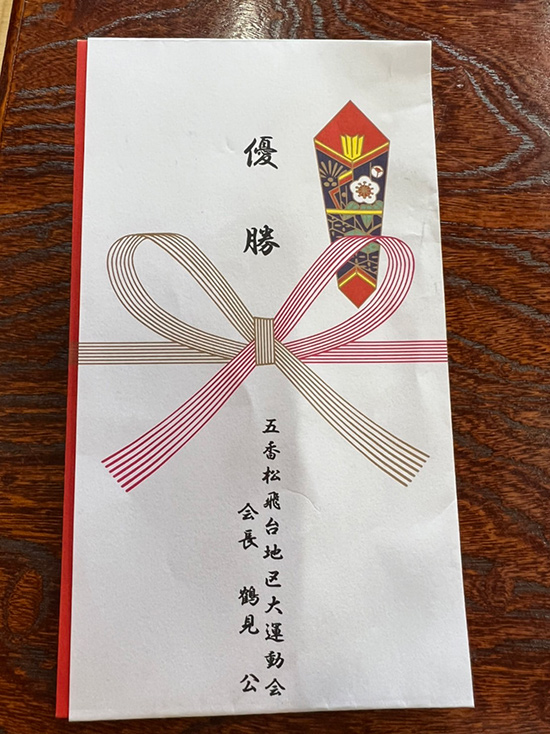 優勝
五香松飛台地区大運動会
会長 鶴見 公